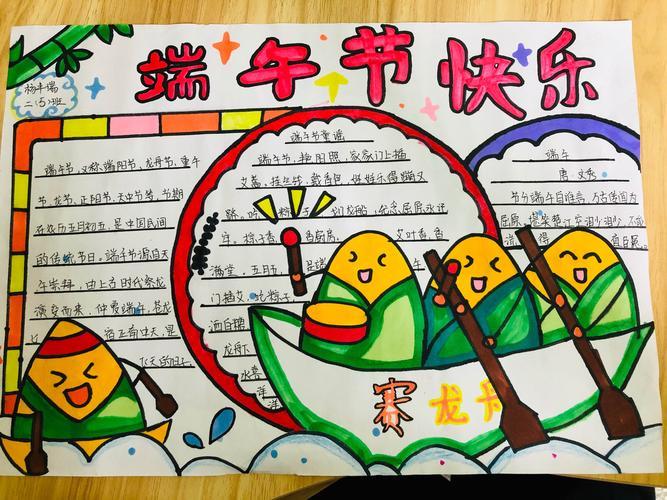 端午节快乐
杨丰瑞
二(5)班
端午节,又称端阳节、龙舟节、重午
节、龙节、正阳节、天中节等,节期
在农历五月初五,是中国民间
的传统节日。端午节源自天
象崇拜,由上古时代祭龙
演变而来。仲夏端午,苍龙
宿正南中天,是
飞天的日
端午节童谣
端午节,艳阳照,家家门上插
艾蒿。挂
粽子
划龙船,纪念屈原
粽子香,
艾叶香,香
满堂。
门插艾,吃粽子
洒白糖
龙舟下
水
端午
唐 文秀
节分端午自谁言,万古传闻为
屈原。堪笑楚江空渺渺,不
得
直臣冤。
赛龙舟